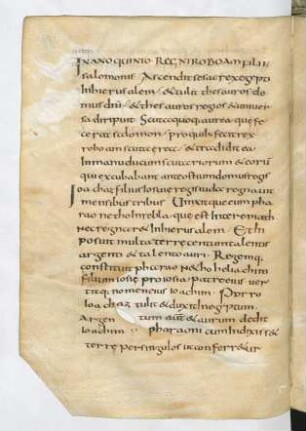 IN ANO QUINTO REGNI ROBOAM FILII
salomonis Ascendit sesac rex egypti
In hierusalem & tulit thesauros do
mus dni & thesauros regios & uniuer
sa diripuit Scuta quoq aurea que fe
cerat salomon pro quib fecit rex
roboam scuta erec & tradidit ea
In manu ducum scutariorum & eorū
qui excubabant ante ostium domus regis
Ioachaz filius Iosie regis iude regnauit
mensibus tribus Uinxitque eum pha
rao necho In rebla que est In ter emath
ne regnaret In hierusalem Et In
posuit multa terre centum talentis
argenti & talento auri Regemq
constituit pharao necho heliachim
filium iosie pro iosia patre eius uer
titq nomen eius Ioachim Porro
Ioachaz tulit & duxit In egyptum
Argen tum aut & aurum dedit
Ioachim pharaoni cum Indixiss&
terre per singulos ut conferr&ur